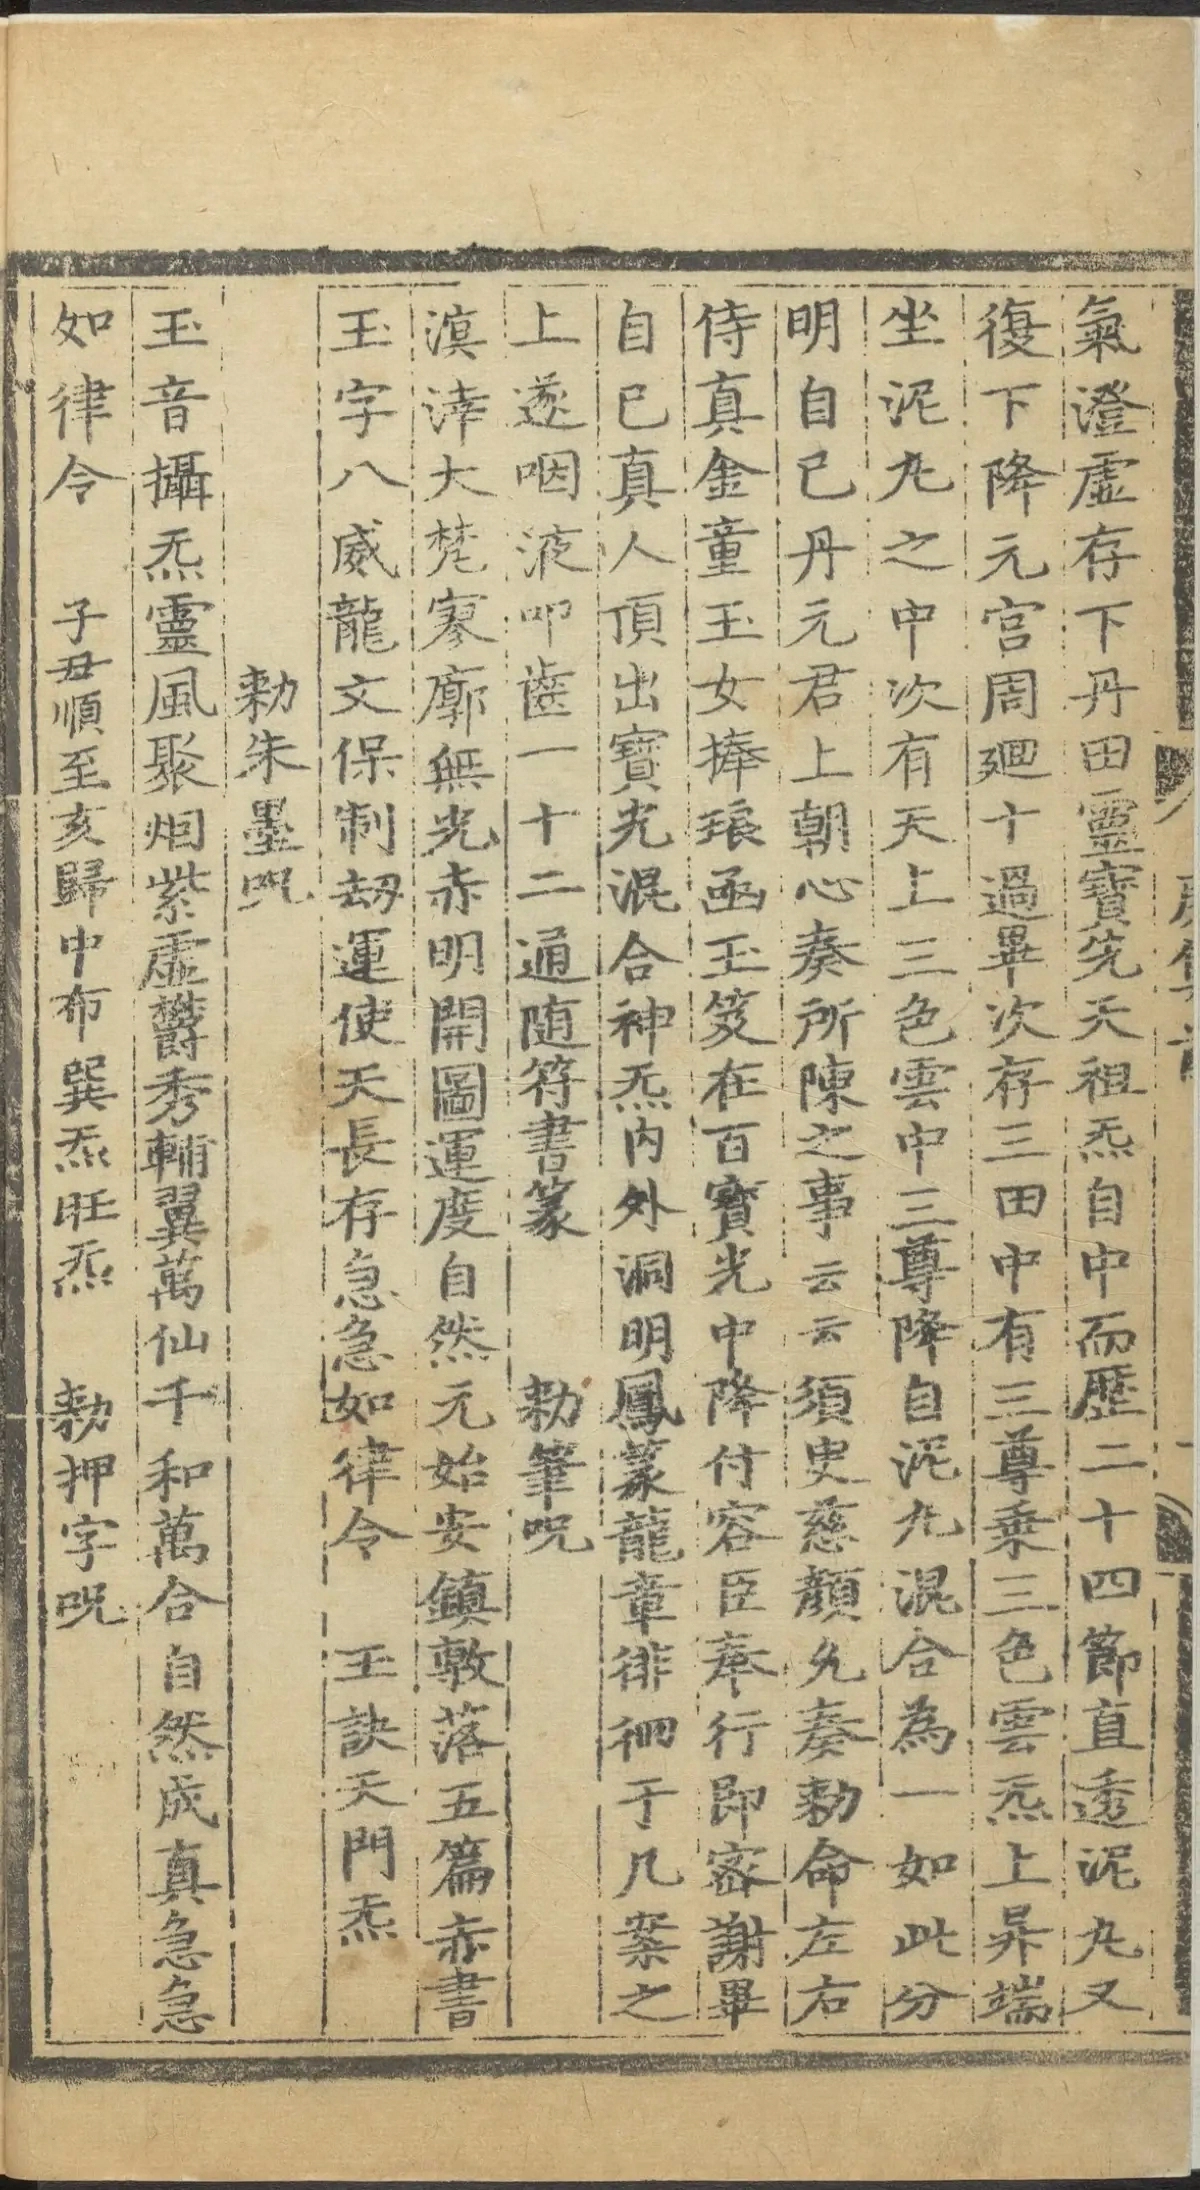 氣澄虛存下丹田靈寶先天祖炁自中而歷二十四節直透泥丸又
復下降元宮周廻十過畢次存三田中有三尊乘三色雲炁上昇端
坐泥丸之中次有天上三色雲中三尊降自泥丸混合為一如此分
明自已丹元君上朝心奏所陳之事云云須史慈顏允奏勑命左右
侍真金童玉女捧琅函玉笈在百寶光中降付容臣奉行即密謝畢
自已真人頂出寶光混合神炁內外洞明鳳篆龍章徘徊于几案之
上遂咽液叩齒一十二通随符書篆　勑筆呪
溟涬大梵寥廓無光赤明開圖運度自然元始安鎮敷落五篇赤書
玉字八威龍文保制刼運使天長存急急如律令　玉訣天門炁
勑朱墨呪
玉音攝炁靈風聚烟紫虛欝秀輔翼萬仙千和萬合自然成真急急
如律令　子丑順至亥歸中布巽炁旺炁　勑押字呪